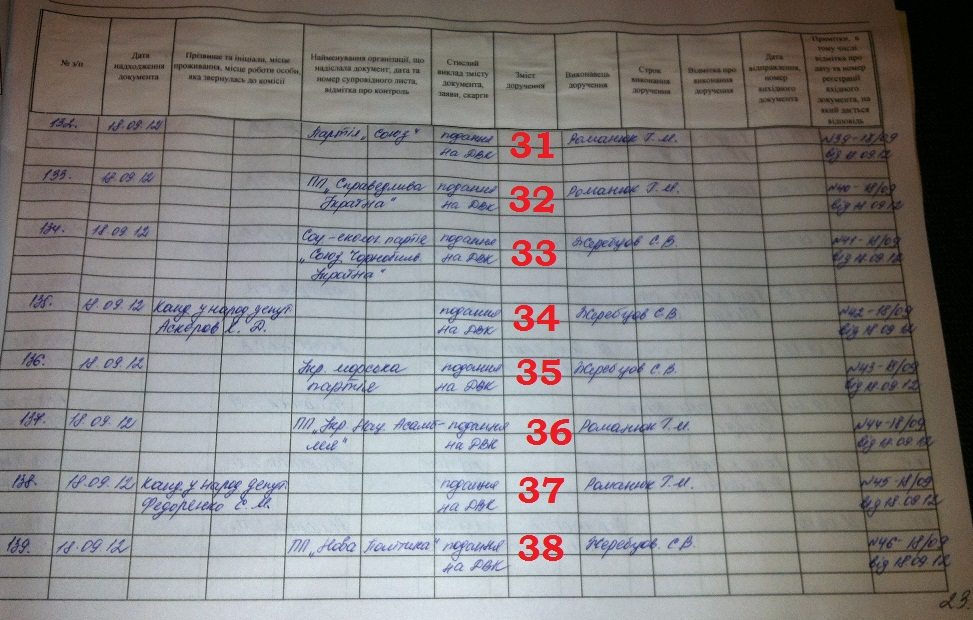 № з/п
Дата
надходження
документа
Прізвище та ініціали, місце
проживання, місце роботи особи,
яка звернулась до комісії
Найменування організації, що
надіслала документ, дата та
номер супровідного листа,
відмітка про контроль
Стислий
виклад змісту
документа,
заяви, скарги
Зміст
доручення
Виконавець
доручення
Строк
виконання
доручення
Відмітка про
виконання
доручення
Дата
відправлення,
номер
вихідного
документа
Примітки, в
тому числі
відмітка про
дату та номер
реєстрації
вхідного
документа, на
який дається
відповідь
132. 18.09.12 Партія „Союз“ подання 31 Романюк Т.М. №39-18/09
на ДВК від 18.09.12
133. 18.09.12 ПП „Справедлива подання 32 Романюк Т.М. №40-18/09
Україна“ на ДВК від 18.09.12
134. 18.09.12 Соц-еколог. партія подання 33 Жеребцов С.В. №41-18/09
„Союз. Чорнобиль. на ДВК від 18.09.12
Україна“
135. 18.09.12 Канд. у народ. депут. подання 34 Жеребцов С.В. №42-18/09
Аскеров Х. Д. на ДВК від 18.09.12
136. 18.09.12 Укр. морська подання 35 Жеребцов С.В. №43-18/09
партія на ДВК від 18.09.12
137. 18.09.12 ПП „Укр. Нац. Асамб- подання 36 Романюк Т.М. №44-18/09
лея“ на ДВК від 18.09.12
138. 18.09.12 Канд. у народ. депут. подання 37 Романюк Т.М. №45-18/09
Федоренко С. М. на ДВК від 18.09.12
139. 18.09.12 ПП „Нова Політика“ подання 38 Жеребцов. С.В. №46-18/09
на ДВК від 18.09.12
23.